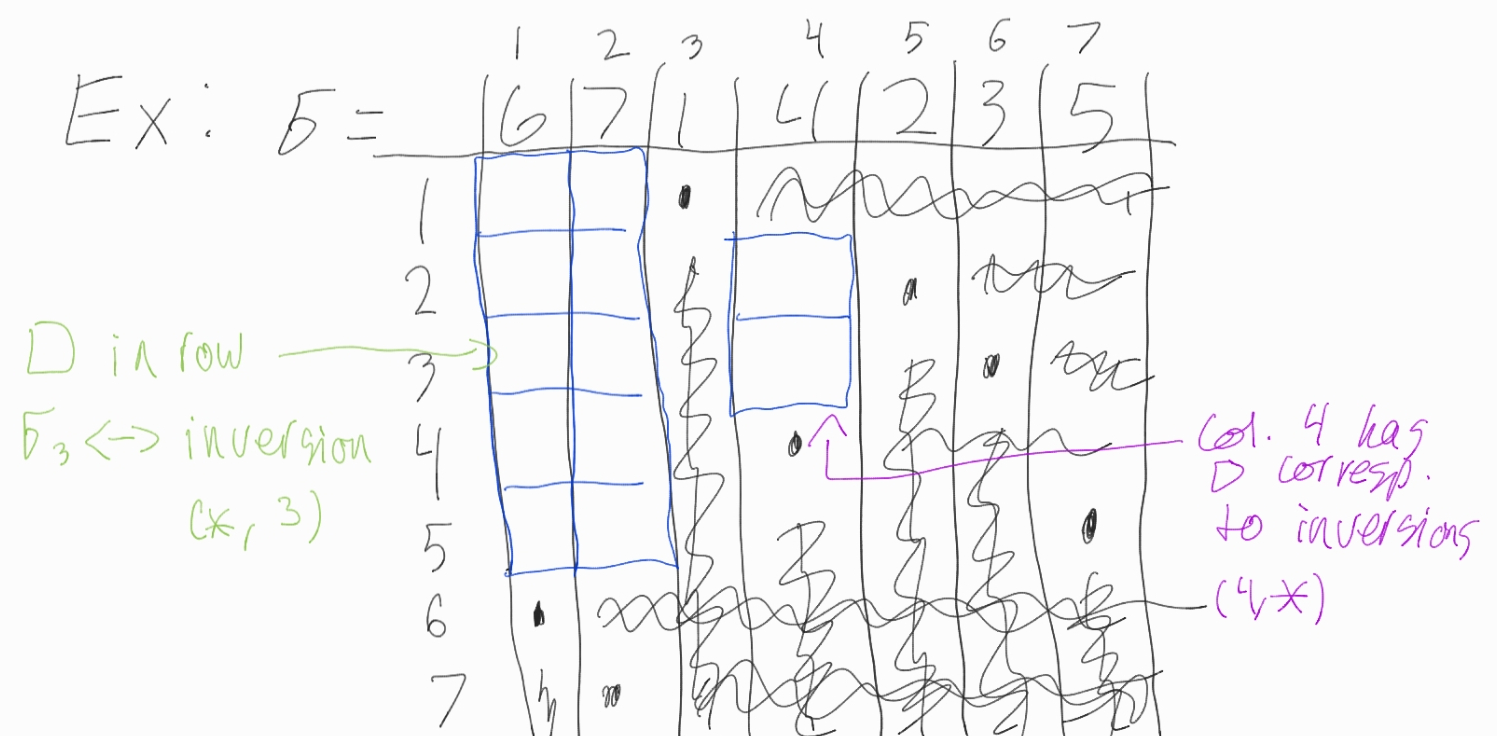 1 2 3 4 5 6 7
Ex: σ = 6 7 1 4 2 3 5
1
2
3
4
5
6
7
□ in row
σ₃ <-> inversion
(*, 3)
Col. 4 has
□ corresp.
to inversions
(4,*)